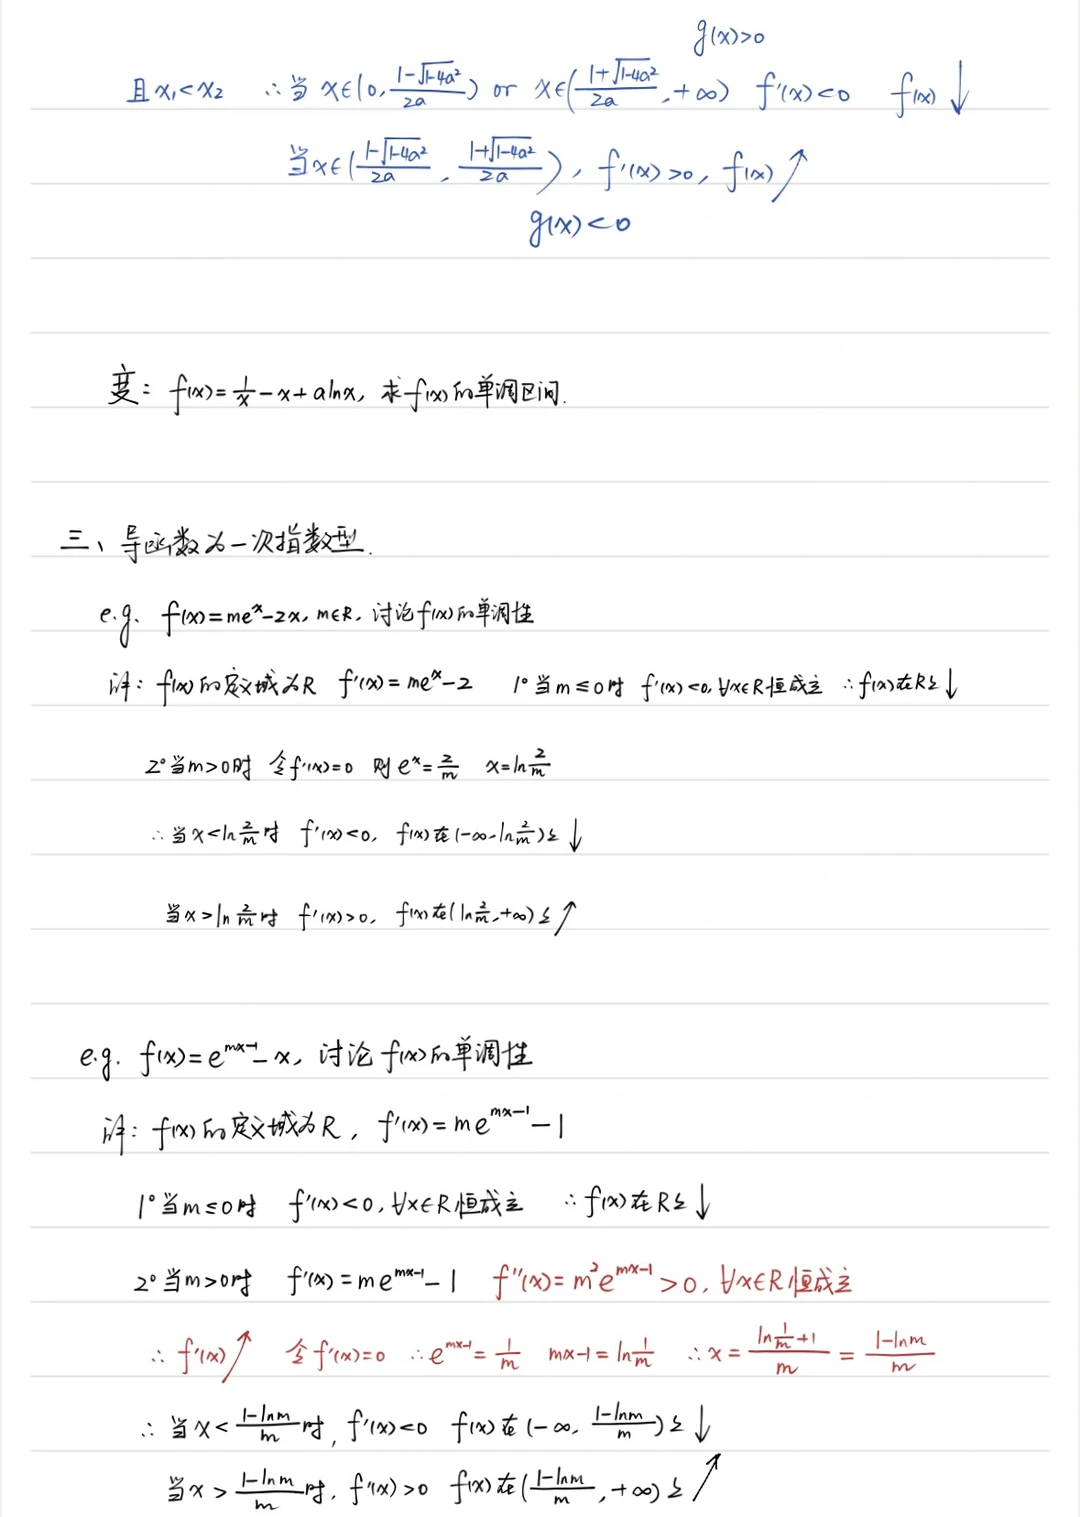 g(x)>0
且 x₁<x₂ ∴当 x∈(0, (1-√(1-4a²))/(2a)) or x∈((1+√(1-4a²))/(2a), +∞) f'(x)<0 f(x)↓
当x∈((1-√(1-4a²))/(2a), (1+√(1-4a²))/(2a)), f'(x)>0, f(x)↗
g(x)<0
变: f(x)=1/x-x+alnx, 求f(x)的单调区间.
三、导函数为一次指数型.
e.g. f(x)=meˣ-2x, m∈R, 讨论f(x)的单调性
解: f(x)的定义域为R f'(x)=meˣ-2 1°当m≤0时 f'(x)<0, ∀x∈R恒成立 ∴f(x)在R上↓
2°当m>0时 令f'(x)=0 则eˣ=2/m x=ln2/m
∴当x<ln2/m时 f'(x)<0, f(x)在(-∞, ln2/m)上↓
当x>ln2/m时 f'(x)>0, f(x)在(ln2/m, +∞)上↗
e.g. f(x)=e^(mx-1)-x, 讨论f(x)的单调性
解: f(x)的定义域为R, f'(x)=me^(mx-1)-1
1°当m≤0时 f'(x)<0, ∀x∈R恒成立 ∴f(x)在R上↓
2°当m>0时 f'(x)=me^(mx-1)-1 f''(x)=m²e^(mx-1)>0, ∀x∈R恒成立
∴f'(x)↗ 令f'(x)=0 ∴e^(mx-1)=1/m mx-1=ln1/m ∴x=(ln1/m+1)/m=(1-lnm)/m
∴当x<(1-lnm)/m时, f'(x)<0 f(x)在(-∞, (1-lnm)/m)上↓
当x>(1-lnm)/m时, f'(x)>0 f(x)在((1-lnm)/m, +∞)上↗